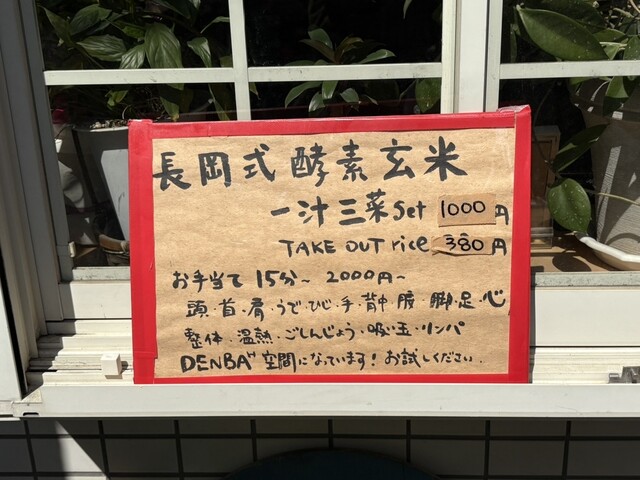 長岡式酵素玄米
一汁三菜set 1000円
TAKE OUT rice 380円
お手当て 15分～2000円～
頭・首・肩・うで・ひじ・手・背中・腰・脚・足・心
整体・温熱・ごしんじょう・吸い玉・リンパ
DENBA空間になっています！お試しください.